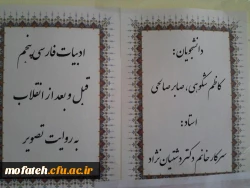 دانشجویان:
کاظم شکوهی، صابر صالحی
استاد:
سرکار خانم دکتر دشتیان نژاد
ادبیات فارسی پنجم
قبل و بعد از انقلاب
به روایت تصویر
mofateh.cfu.ac.ir